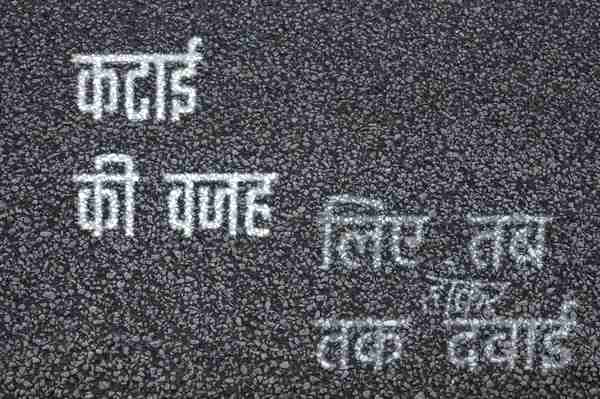 कटाई
की वजह
लिए तब
तक दवाई